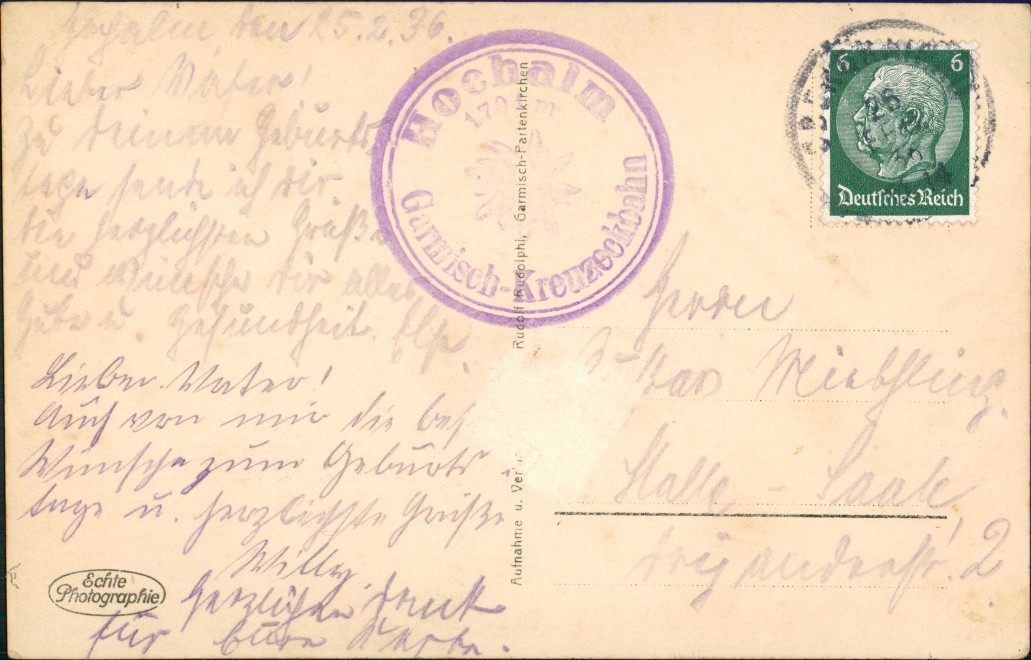 Hochalm den 25.2.36.
Lieber Vater!
Zu Deinem Geburts
tage sende ich Dir
die herzlichsten Grüße
und wünsche Dir alles
Gute u. Gesundheit. Else.
Lieber Vater!
Auch von mir die bes
Wünsche zum Geburts
tage u. herzlichste Grüße
Willy.
Herzlichen Dank
für Eure Karte.
Echte
Photographie
Hochalm
1705 m
Garmisch-Kreuzeckbahn
Aufnahme u. Ver
Rudolf Rudolphi, Garmisch-Partenkirchen
6 6
Deutsches Reich
26
Herrn
Miebsling.
Halle - Saale
2